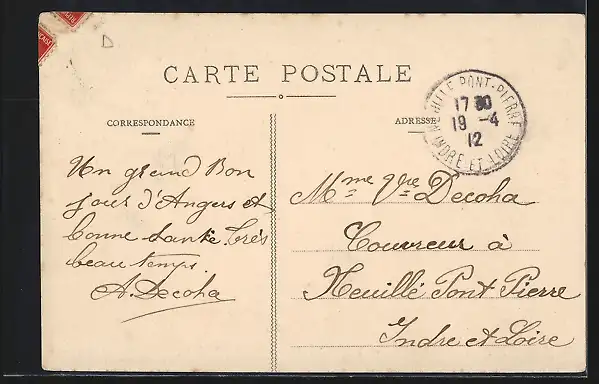 D
CARTE POSTALE
CORRESPONDANCE
ADRESSE
NEUILLE PONT-PIERRE
17 30
19 -4
12
INDRE ET LOIRE
Un grand Bon
jour d'Angers et
bonne santé très
beau temps.
A. Decoha
Mme Vve Decoha
Couvreur à
Neuillé Pont Pierre
Indre et Loire